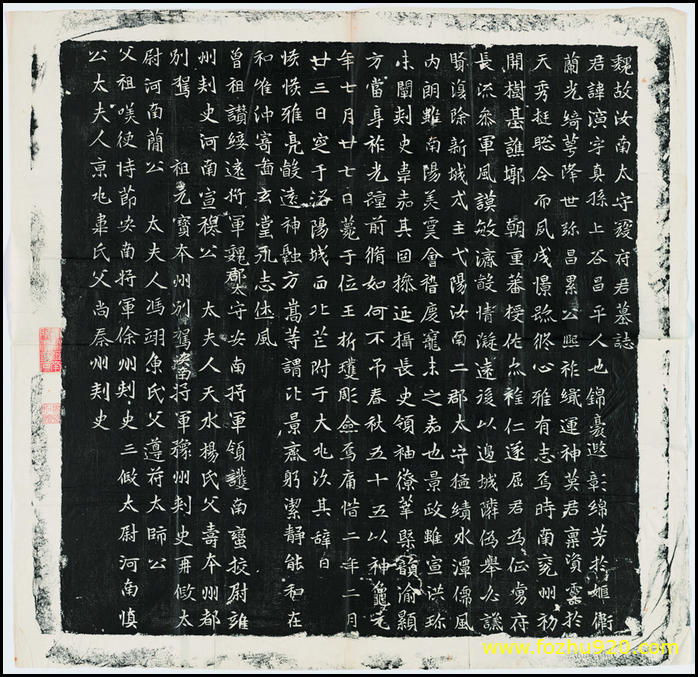 魏故汝南太守寇府君墓誌
君諱演字真孫上谷昌平人也錦裹遐彰綿芳於姬衛
蘭光綺萼降世弥昌累公熙祚織運神英君稟資靈於
天秀挺聡令而夙成憬䟽脩心雅有志焉時南兖州初
開樹基譙鄴朝重蕃授佐簡仁遂屈君為征虜府
長流參軍風謨敏濟毅情凝遠後以邊城隣偽舉必
賢復除新城戍主弋陽汝南二郡太守猛績水潭儒風
内朗雖南陽美化會稽慶寵未之若也景政雖宣洪
未闡刾史韋若其固操延攝長史領袖僚莘槩韻渝顯
方當身祚光踵前脩如何不吊春秋五十五以神龜元
年七月廿七日薨于位玉折瓊彫僉焉痛惜二年二月
廿三日窆于洛陽城西北芒附于大兆次其辭曰
惔惔雅亮毅遠神融方嵩等謂比景齊躬潔静能和在
和惟沖寄啚玄堂永志休風
曾祖讃綏遠將軍魏郡太守安南將軍領護南蠻挍尉雍
州刾史河南宣穆公　太夫人天水楊氏父喜本州都
別駕　祖元寳本州別駕安南將軍豫州刾史再假太
尉河南蕳公　太夫人馮翊魚氏父遵苻太師公
父祖嘆使持節安南將軍徐州刾史三假太尉河南慎
公太夫人京兆韋氏父尚秦州刾史
www.fozhu920.com